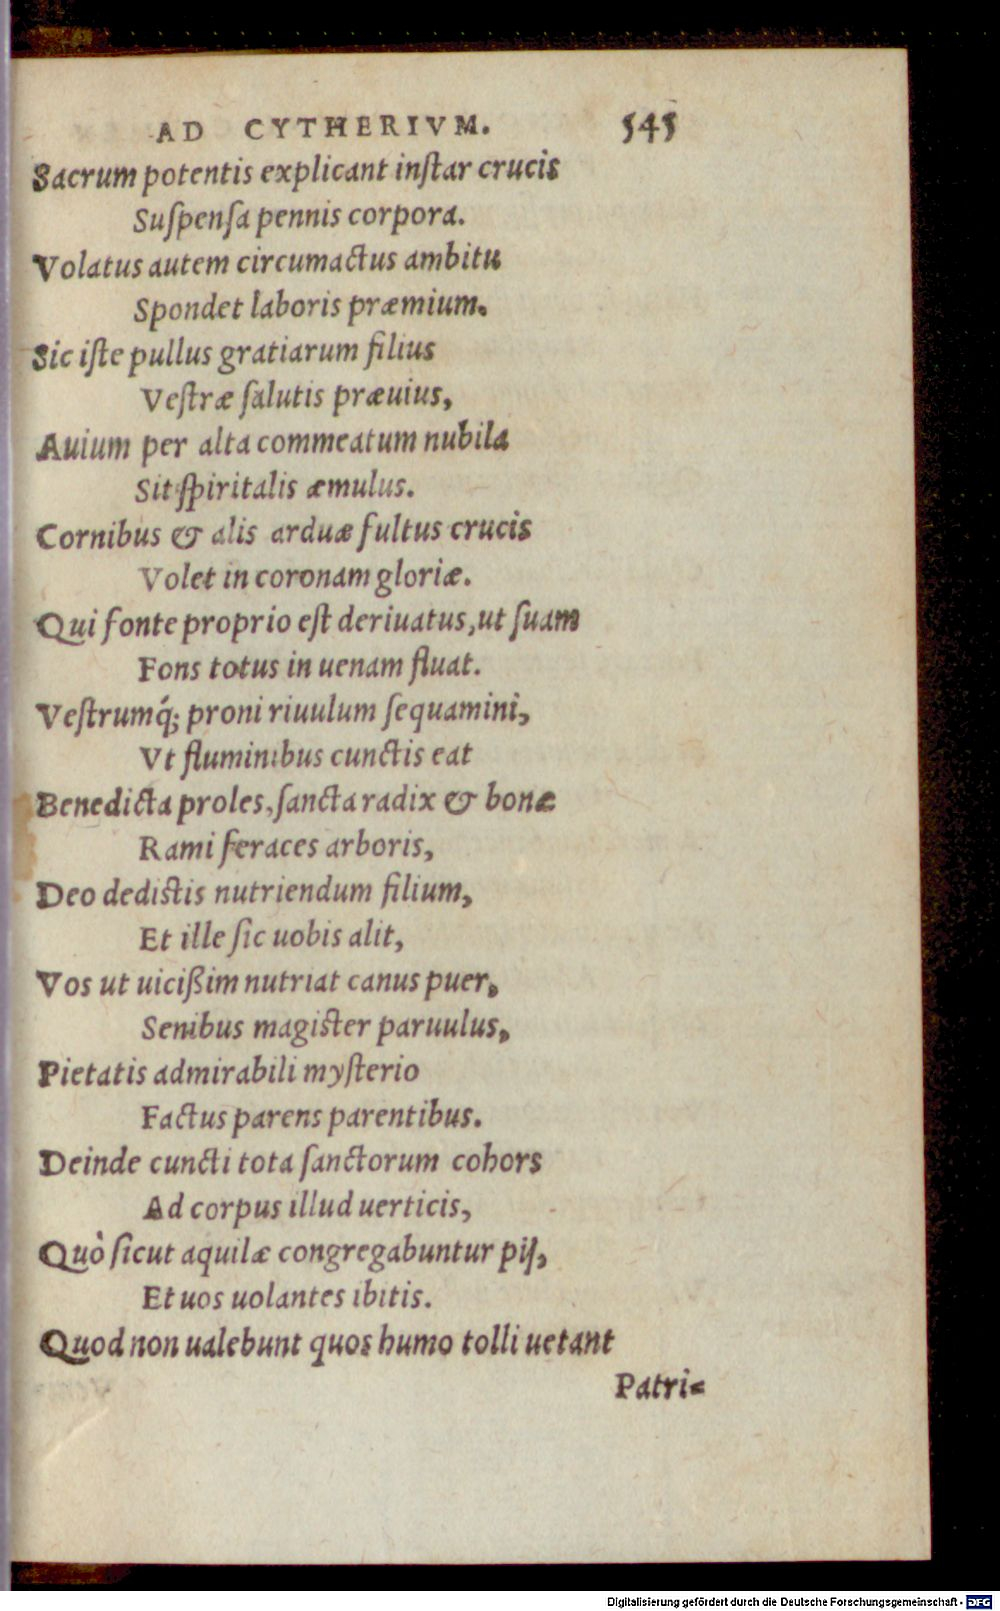 AD CYTHERIVM. 545
Sacrum potentis explicant inſtar crucis
Suſpenſa pennis corpora.
Volatus autem circumactus ambitu
Spondet laboris præmium.
Sic iſte pullus gratiarum filius
Veſtræ ſalutis præuius,
Auium per alta commeatum nubila
Sit ſpiritalis æmulus.
Cornibus & alis arduæ fultus crucis
Volet in coronam gloriæ.
Qui fonte proprio eſt deriuatus, ut ſuam
Fons totus in uenam fluat.
Veſtrumq́; proni riuulum ſequamini,
Vt fluminibus cunctis eat
Benedicta proles, ſancta radix & bonæ
Rami feraces arboris,
Deo dedistis nutriendum filium,
Et ille ſic uobis alit,
Vos ut uicißim nutriat canus puer,
Senibus magister paruulus,
Pietatis admirabili myſterio
Factus parens parentibus.
Deinde cuncti tota ſanctorum cohors
Ad corpus illud uerticis,
Quò ſicut aquilæ congregabuntur pij,
Et uos uolantes ibitis.
Quod non ualebunt quos humo tolli uetant
Patri=
Digitalisierung gefördert durch die Deutsche Forschungsgemeinschaft - DFG